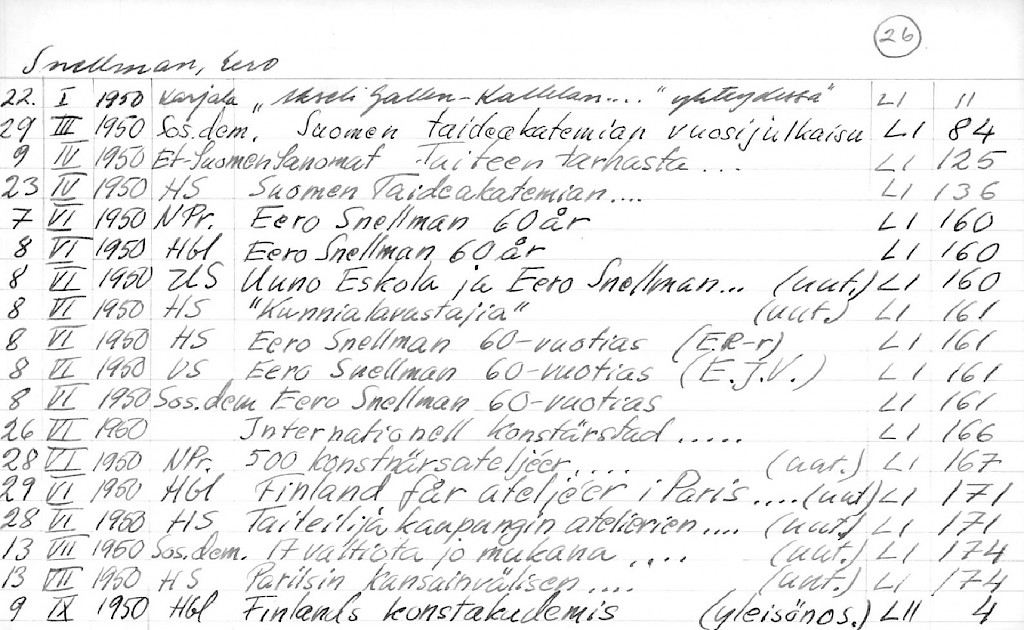 26
Snellman, Eero
22. I 1950 Karjala „Akseli Gallen-Kallelan...." yhteydessä LI 11
29 III 1950 Sos.dem. Suomen taideakatemian vuosijulkaisu LI 84
9 IV 1950 Et-Suomen Sanomat Taiteen tarhasta... LI 125
23 IV 1950 HS Suomen Taideakatemian.... LI 136
7 VI 1950 NPr. Eero Snellman 60 år LI 160
8 VI 1950 Hbl Eero Snellman 60 år LI 160
8 VI 1950 US Uuno Eskola ja Eero Snellman... (uut.) LI 160
8 VI 1950 HS "Kunnialavastajia" (uut.) LI 161
8 VI 1950 HS Eero Snellman 60-vuotias (E.R-r) LI 161
8 VI 1950 VS Eero Snellman 60-vuotias (E.J.V.) LI 161
8 VI 1950 Sos.dem Eero Snellman 60-vuotias LI 161
26 VI 1950 Internationell konstärstad ..... LI 166
28 VI 1950 NPr. 500 konstnärsateljéer.... (uut.) LI 167
29 VI 1950 Hbl Finland får ateljéer i Paris.... (uut) LI 171
28 VI 1950 HS Taiteilijakaupungin atelierien.... (uut.) LI 171
13 VII 1950 Sos.dem. 17 valtiota jo mukana .... (uut.) LI 174
13 VII 1950 HS Pariisin kansainvälisen.... (uut.) LI 174
9 IX 1950 Hbl Finlands konstakademis (yleisönos.) LII 4